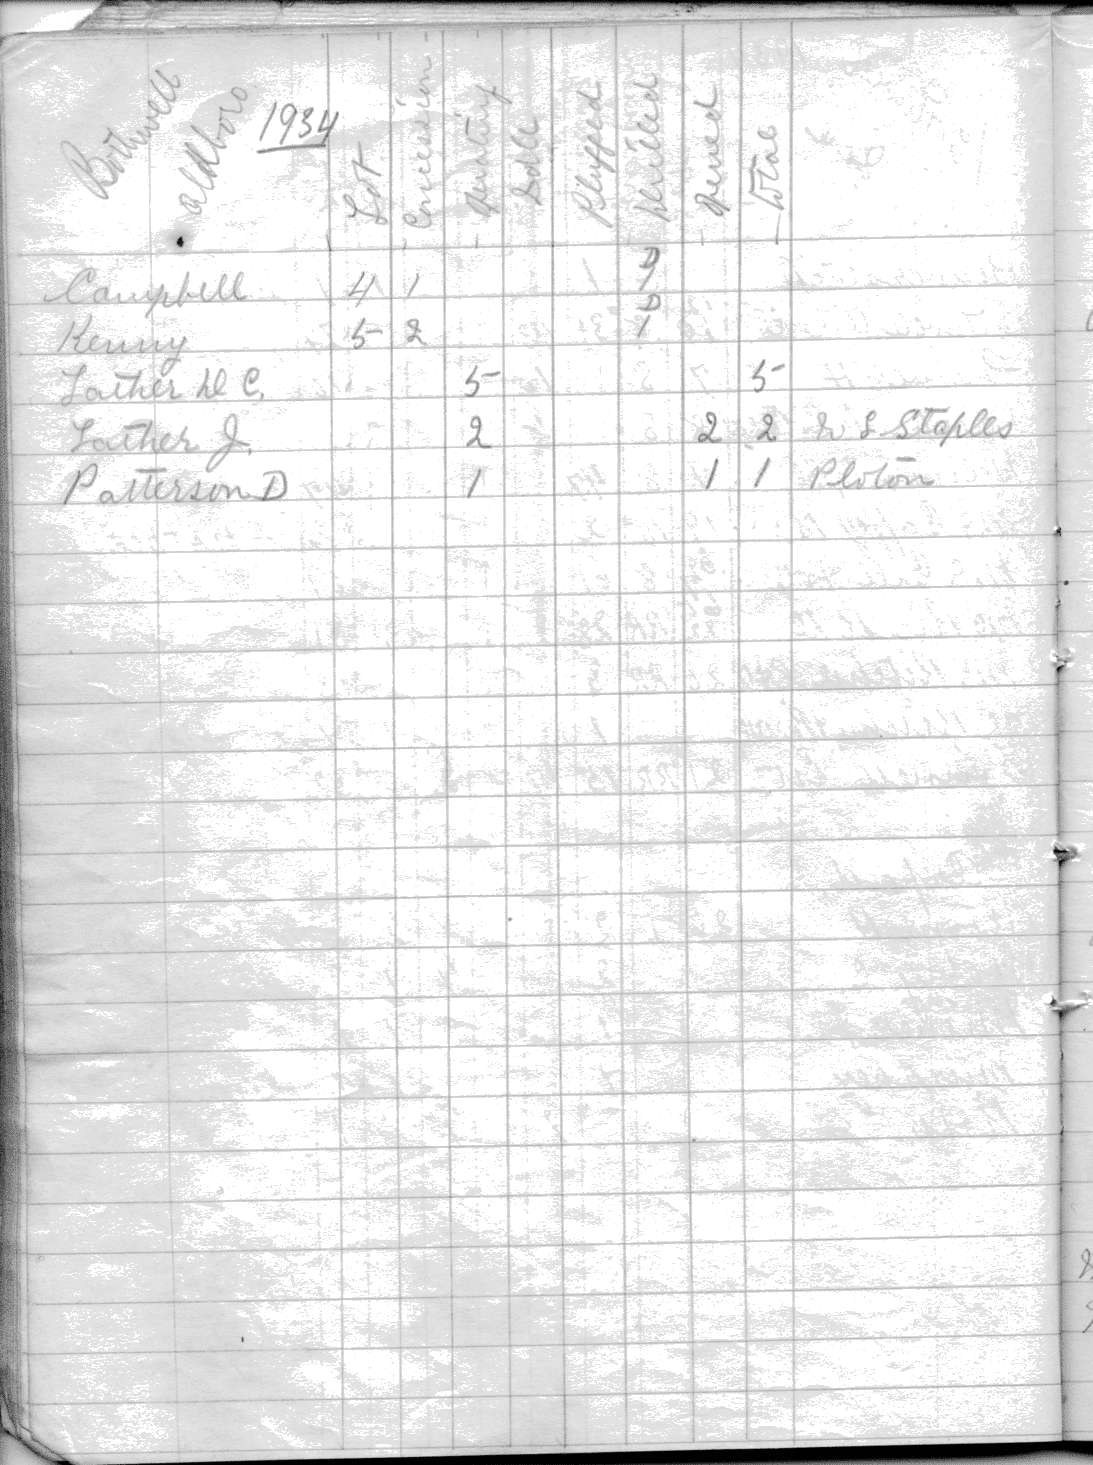 Bothwell
Aldboro 1934
Lot Concession Quantity Sold Plugged Drilled Pumped Total
D
Campbell 4 1 1
D
Kenny 5 2 1
Lather D C. 5 5
Lather J. 2 2 2 Staples
Patterson D 1 1 1